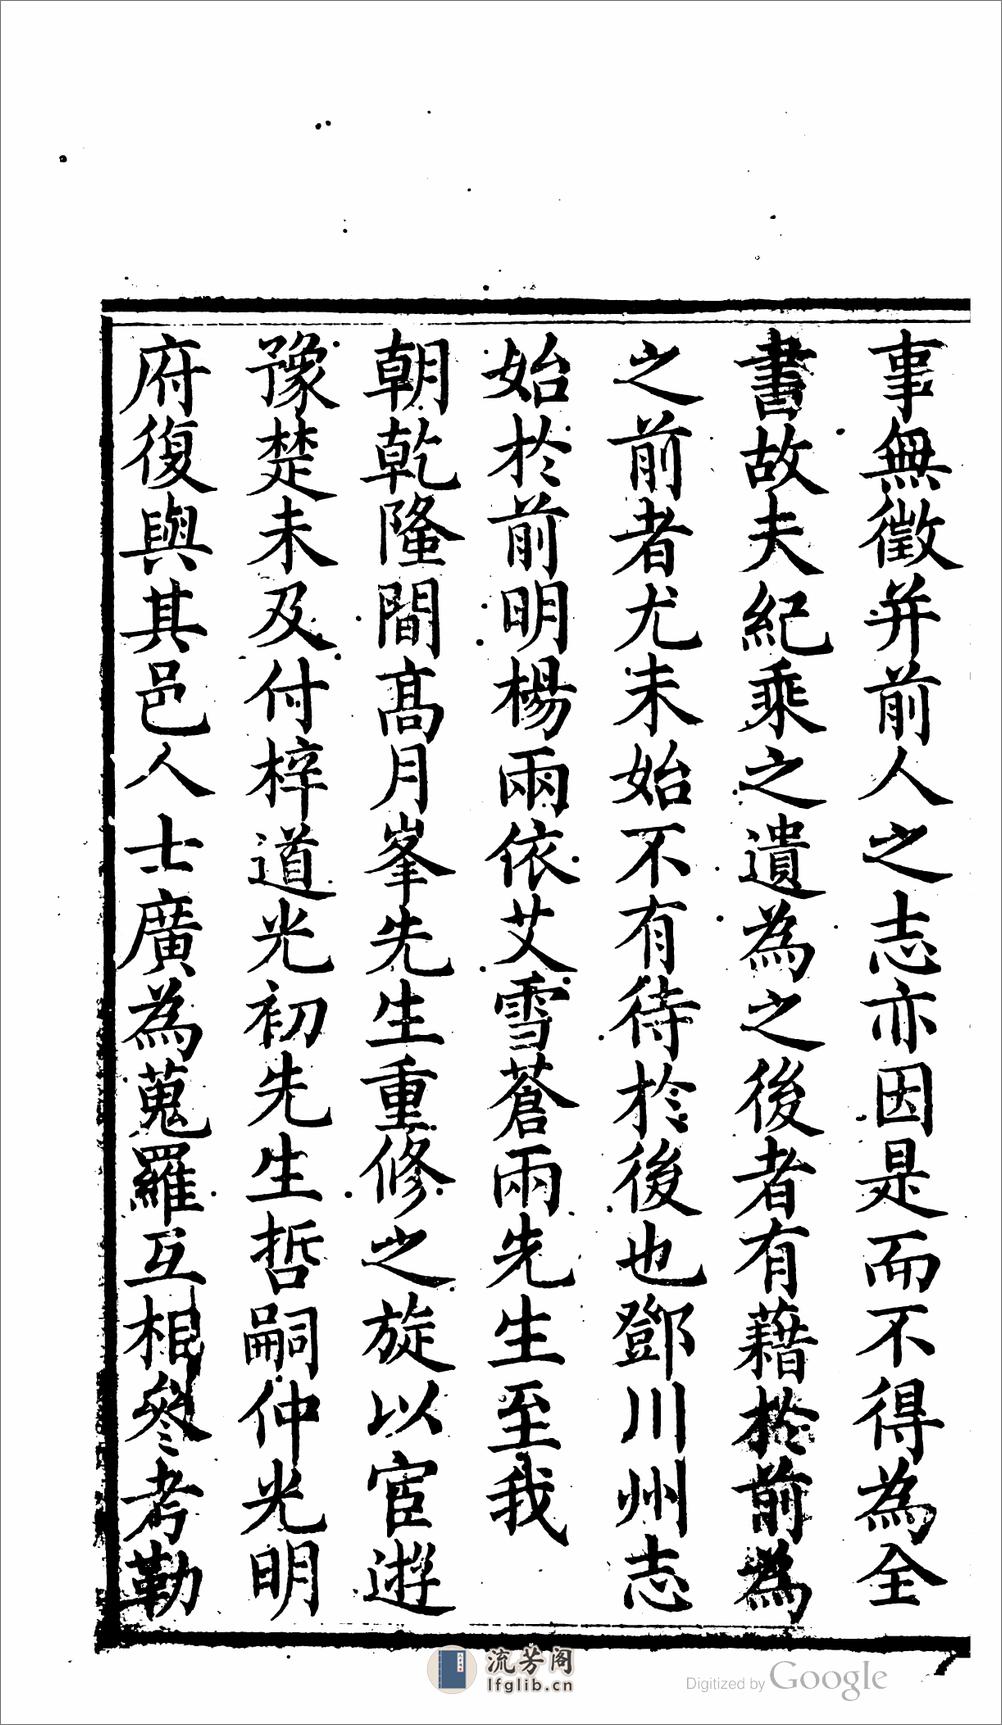 事無徵并前人之志亦因是而不得為全
書故夫紀乘之遺為之後者有藉於前為
之前者尤未始不有待於後也鄧川州志
始於前明楊兩依艾雪蒼兩先生至我
朝乾隆間高月峯先生重修之旋以宦遊
豫楚未及付梓道光初先生哲嗣仲光明
府復與其邑人士廣為蒐羅互相參考勒
流芳阁
lfglib.cn
Digitized by Google